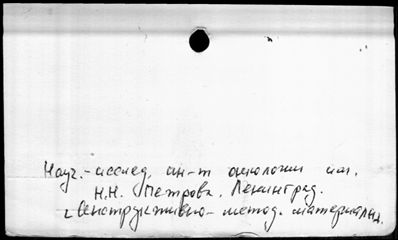 Науч.-исслед. ин-т онкологии им.
Н.Н. Петрова. Ленинград.
Инструктивно-метод. материалы.